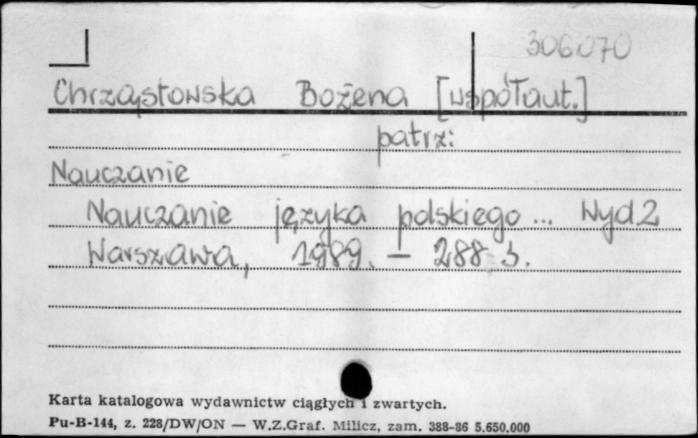 306070
Chrząstowska Bożena [współaut.]
patrz:
Nauczanie
Nauczanie języka polskiego... Wyd 2
Warszawa, 1989. - 288 s.
Karta katalogowa wydawnictw ciągłych i zwartych.
Pu-B-144, z. 228/DW/ON — W.Z.Graf. Milicz, zam. 388-86 5.650.000